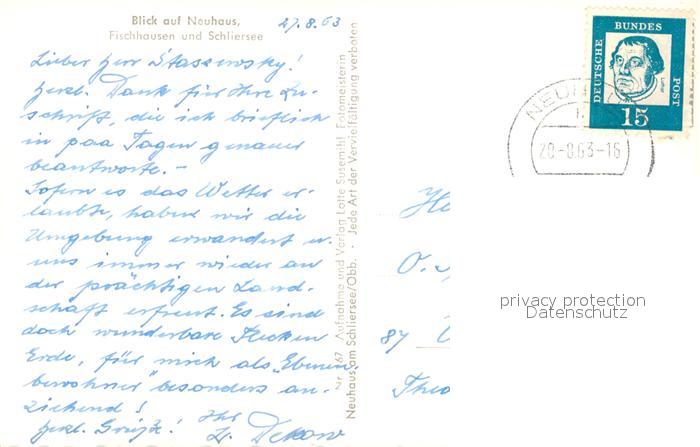 Blick auf Neuhaus,
Fischhausen und Schliersee
27.8.63
Lieber Herr Staszewsky!
Herzl. Dank für Ihre Zu-
schrift, die ich brieflich
in paa Tagen genauer
beantworte. –
Sofern es das Wetter er-
laubte, haben wir die
Umgebung erwandert u.
uns immer wieder an
der prächtigen Land-
schaft erfreut. Es sind
doch wunderbare Flecken
Erde, für mich als "Ebenen
bewohner" besonders an-
ziehend!
Herzl. Grüße! Ihr
Aufnahme und Verlag Lotte Susemihl, Fotomeisterin
Neuhaus am Schliersee/Obb. · Jede Art der Vervielfältigung verboten
DEUTSCHE
BUNDES
POST
Luther
15
28.-8.63-16
87
privacy protection
Datenschutz